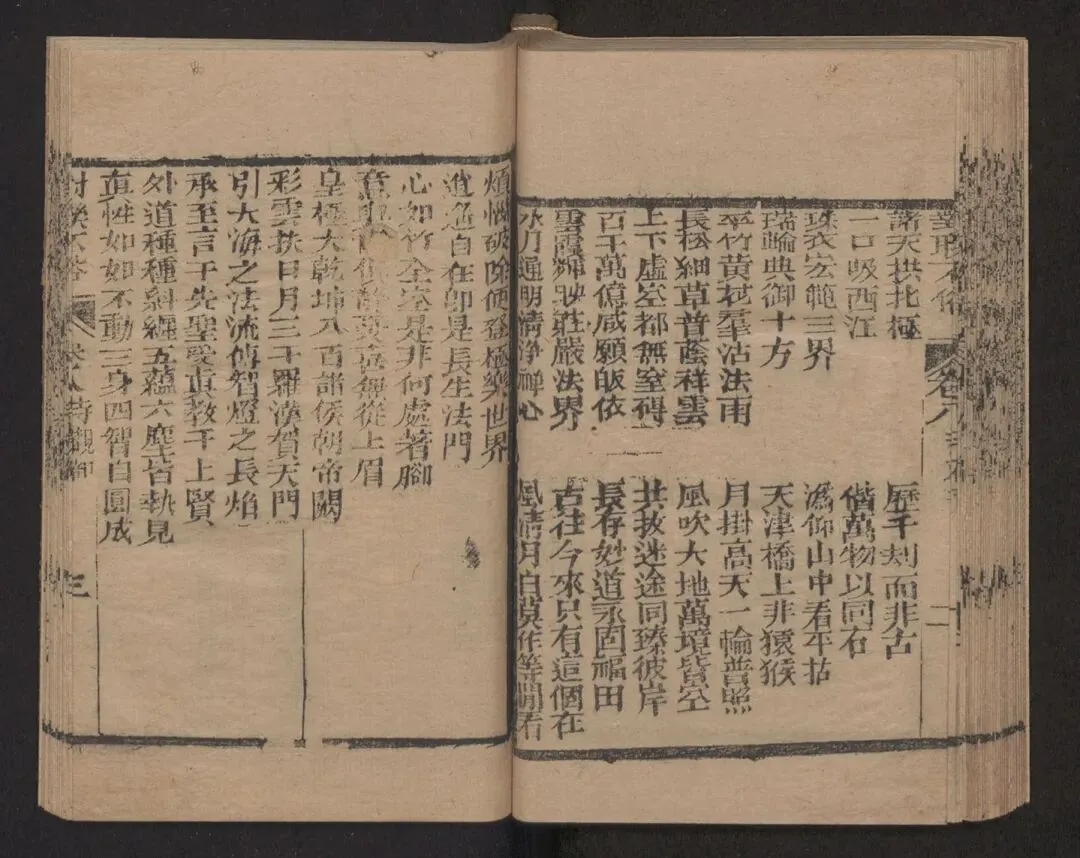 卷八 二
諸天拱北極 歷千刦而非古
一口吸西江 偕萬物以同
珠衣宏範三界 溈仰山中看平拈
瑞輪典御十方 天津橋上非猿猴
翠竹黃花羣沾法雨 月掛高天一輪普照
長松細草普蔭祥雲 風吹大地萬境皆空
上下虛空都無窒碍 共扳迷途同臻彼岸
百千萬億咸願皈依 長存妙道永固福田
雲霞輝映莊嚴法界 古往今來只有這個在
水月通明清淨禪心 風清月白莫作等閒看
煩惱破除便登極樂世界
逍遙自在卽是長生法門
心如竹全空是非何處著腳
意無從上眉
皇極大乾坤八百諸侯朝帝闕
彩雲扶日月三千羅漢賀天門
引大海之法流傳智燈之長焰
承至言于先聖受眞教于上賢
外道種種糾纏五蘊六塵皆執見
眞性如如不動三身四智自圓成
卷八 寺觀 三